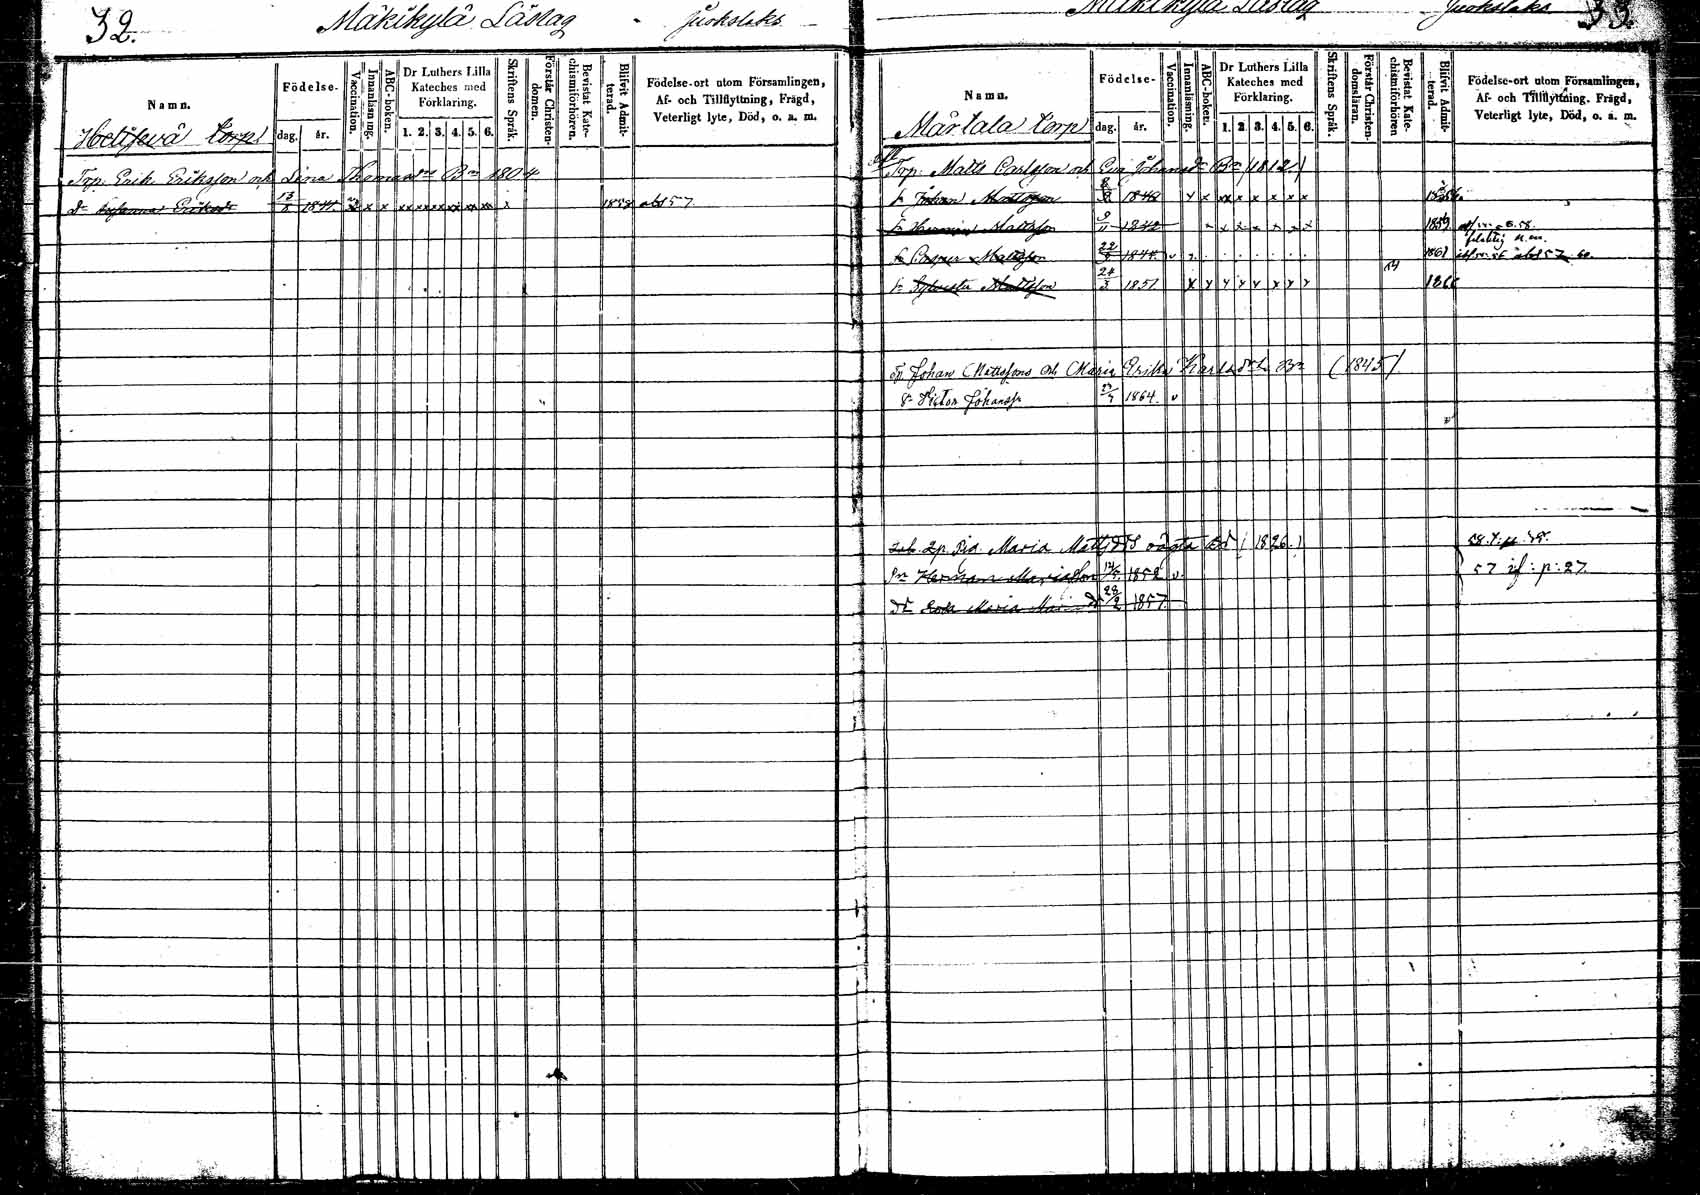 32.
Mäkikylä Läslag - Juokslaks -
Namn.
Födelse-
dag. år.
Vaccination.
Innanläsning.
ABC-boken.
Dr Luthers Lilla Kateches med Förklaring.
1. 2. 3. 4. 5. 6.
Skriftens Språk.
Förstår Christendomen.
Bevistat Katechismiförhören.
Blifvit Admitterad.
Födelse-ort utom Församlingen, Af- och Tillflyttning, Frägd, Veterligt lyte, Död, o. a. m.
torp
Torp. Erik Eriksson och Lina Thomasdr Bn 1804
Dr Susanna Eriksdr 13/8 1841. x x x xx xx xx xx xx xx x 1858 abs 57
33.
Mäkikylä Läslag Juokslaks
Namn.
Födelse-
dag. år.
Vaccination.
Innanläsning.
ABC-boken.
Dr Luthers Lilla Kateches med Förklaring.
1. 2. 3. 4. 5. 6.
Skriftens Språk.
Förstår Christendomsläran.
Bevistat Katechismiförhören
Blifvit Admitterad.
Födelse-ort utom Församlingen, Af- och Tillflyttning. Frägd, Veterligt lyte, Död, o. a. m.
Märtala torp
Torp. Matts Carlsson och Johansdr Bn (1812.)
Johan Mattsson 1840 x x xx x x x x x
Herman Mattsson 9/11 1842 x x x x x x 1859
Casper Mattsson 22/5 1844. v 1861 abs 57 60.
Sylvester Mattsson 24/3 1851 x x x x x x x x 1866
Tp Johan Mattssons och Maria Erika Karlsdrs Bn (1845)
Sn Victor Johanss 1864. v
Tp. Pig. Maria Mattsdrs oägta (1826.)
Sn Herman Mariasson 12/5 1852 v. 57 if: p: 27.
Dr Maria 28/2 1857.